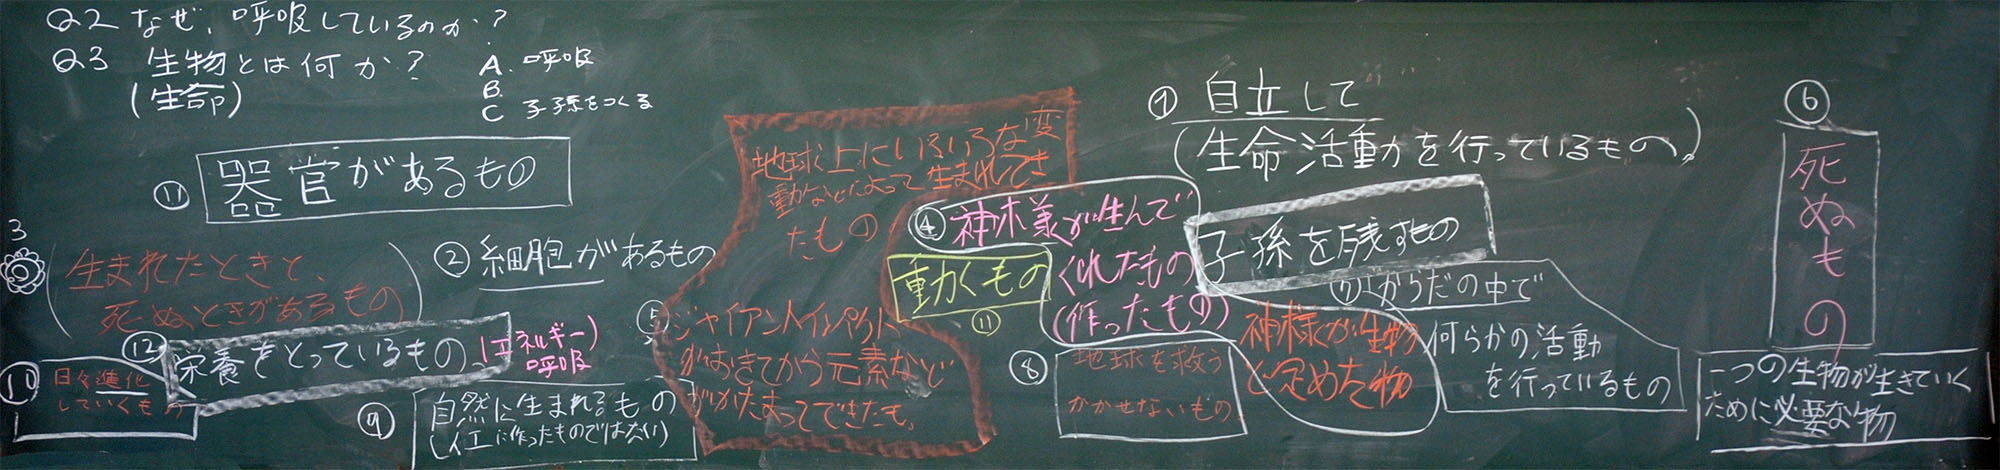 Q2 なぜ、呼吸しているのか?
Q3 生物とは何か?
(生命)
A. 呼吸
B.
C 子孫をつくる
⑪ 器官があるもの
3
(生まれたときと、
死ぬときがあるもの)
② 細胞があるもの
⑫ 栄養をとっているもの
(エネルギー)
呼吸
⑩ 日々進化
していくもの
⑨ 自然に生まれるもの
(人工に作ったものではない)
地球上にいろいろな変
動などによって生まれてき
たもの
⑤ ジャイアントインパクト
がおきてから元素など
がかたまってできたも。
④ 神様が生んで
くれたもの
(作ったもの)
動くもの
⑪
① 自立して
(生命活動を行っているもの。)
子孫を残すもの
神様が生物
と定めた物
⑦ からだの中で
何らかの活動
を行っているもの
⑧ 地球を救う
かかせないもの。
⑥
死ぬもの
一つの生物が生きていく
ために必要な物